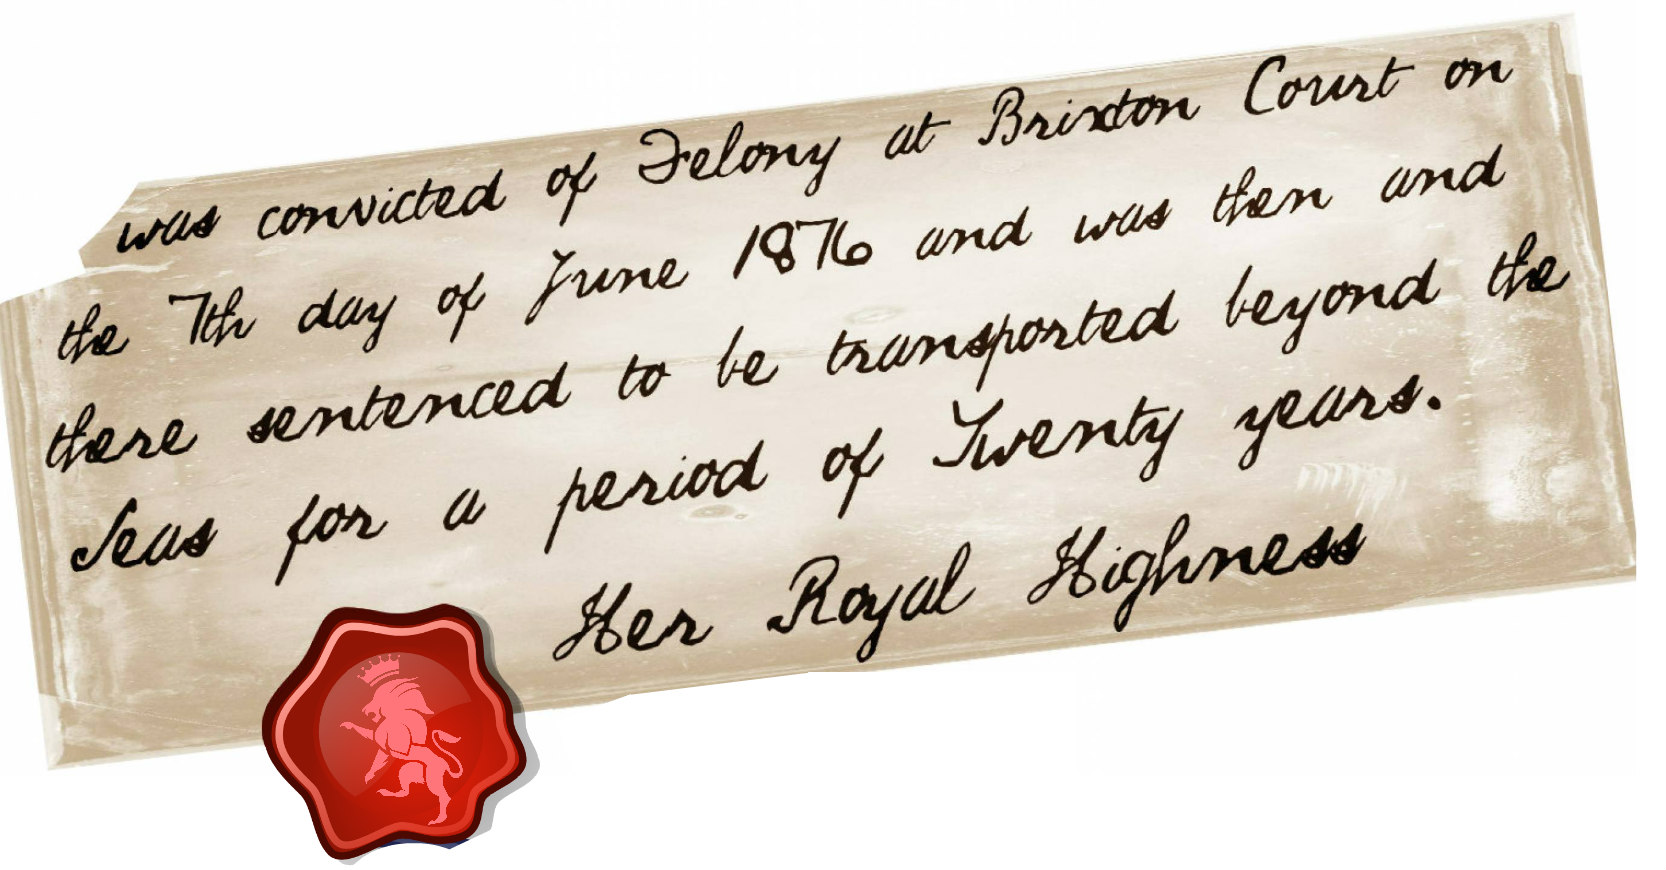 was convicted of Felony at Brixton Court on
the 7th day of June 1876 and was then and
there sentenced to be transported beyond the
Seas for a period of Twenty years.
Her Royal Highness